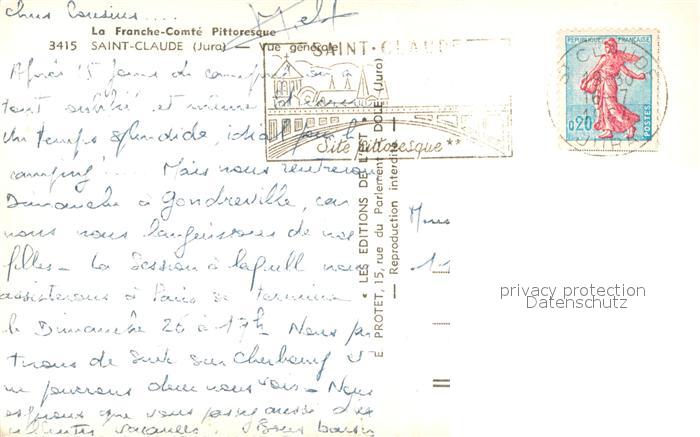 chers Cousins ....
La Franche-Comté Pittoresque
3415 SAINT-CLAUDE (Jura) — Vue générale
Après 15 jours de camping on a
tout oublié et même
Un temps splendide, idéal pour le
camping! ... Mais nous rentrerons
Dimanche à Gondreville, car
nous nous languissons de nos
filles - La Session à laquelle nous
assisterons à Paris se termine
le Dimanche 26 à 17h Nous
tirons de suite sur Cherbourg et
ne pourrons donc vous voir - Nous
espérons que vous passez aussi d'ex
cellentes vacances. Bons baisers
SAINT-CLAUDE
(Jura)
Site pittoresque **
* LES EDITIONS DE L'EST *
E. PROTET, 15, rue du Parlement - DOLE
— Reproduction interdite —
REPUBLIQUE FRANÇAISE
0,20
POSTES
ST CLAUDE
JURA
privacy protection
Datenschutz